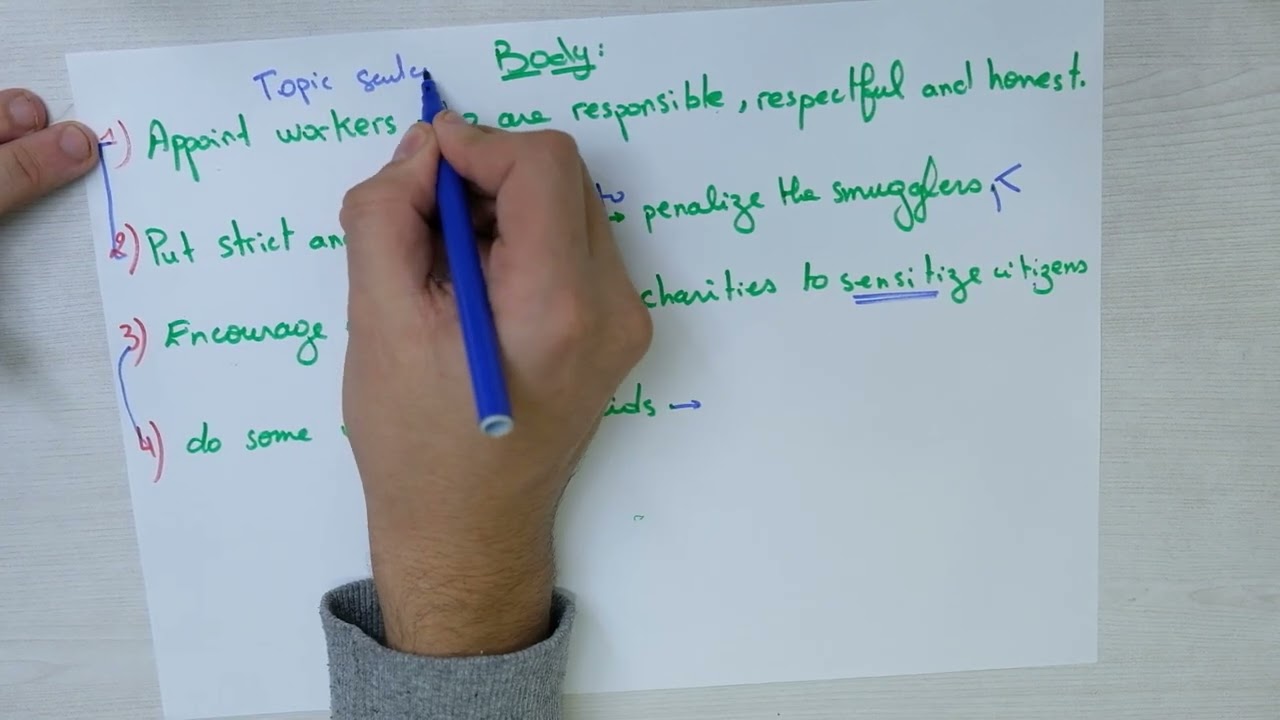 Body:
Topic
1) Appoint workers are responsible, respectful and honest.
2) Put strict to → penalize the smugglers, <
3) Encourage charities to sensitize citizens
4) do some →